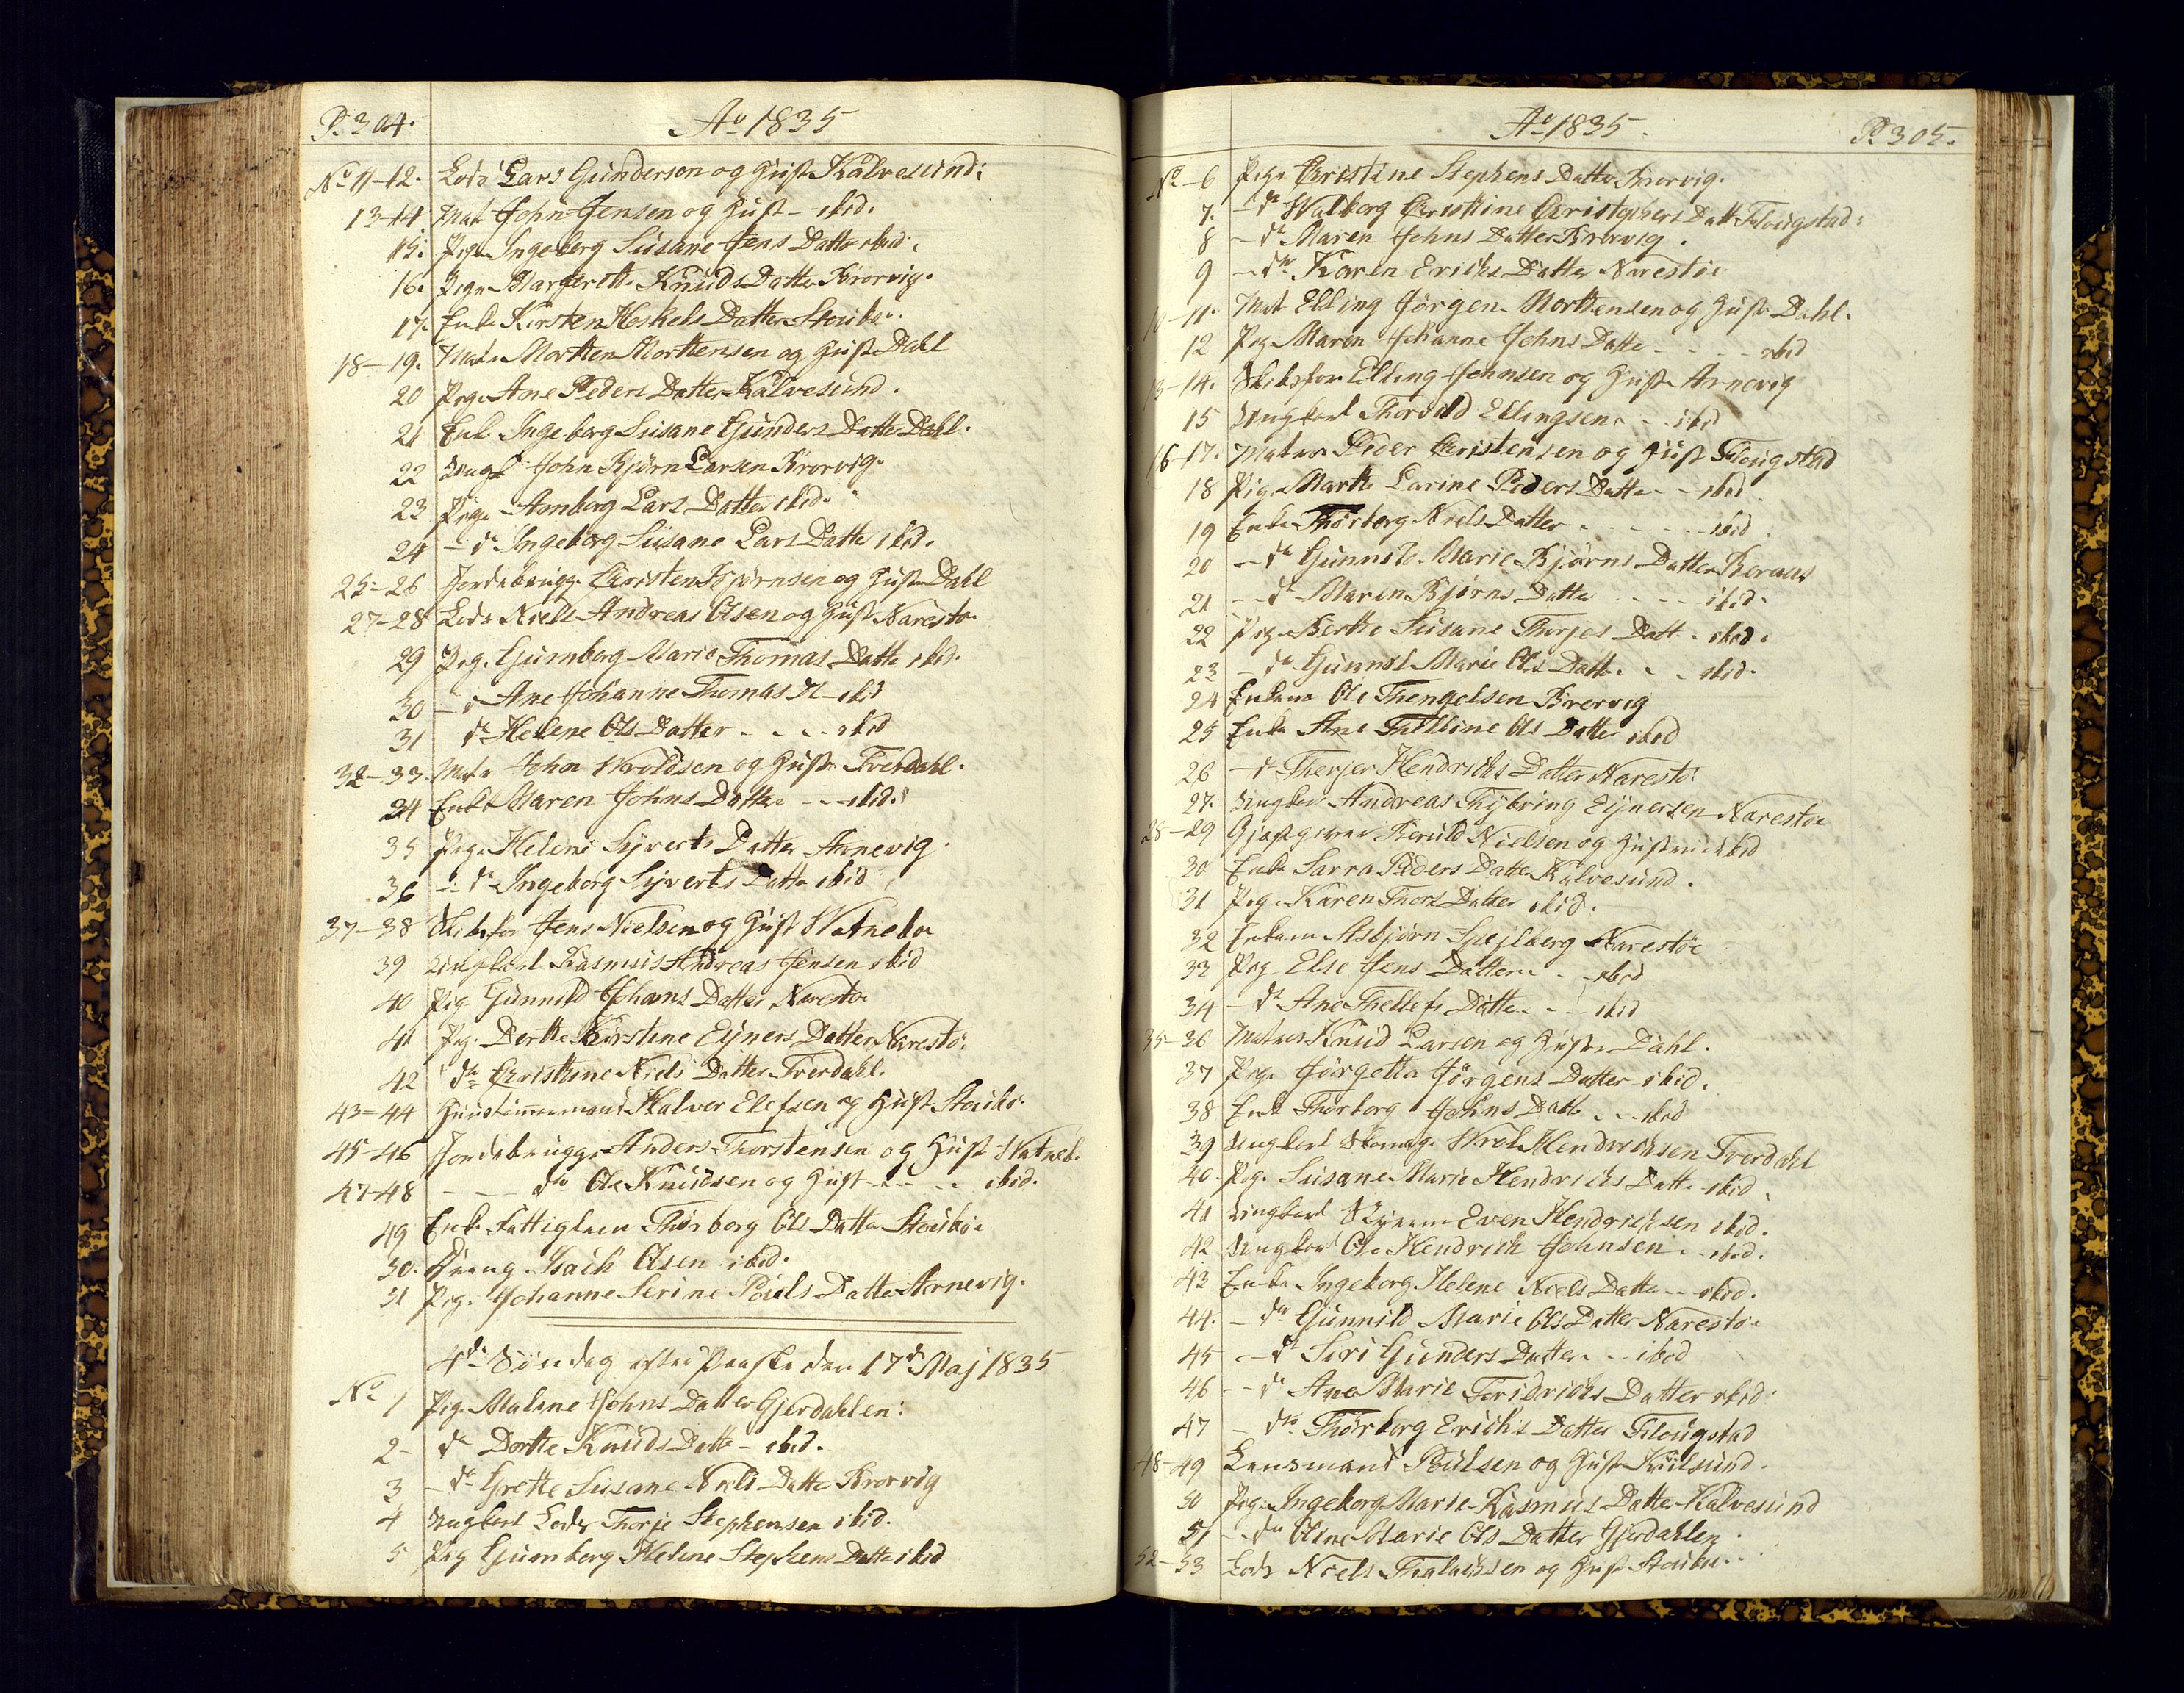 P. 304.
Ao 1835
No 11-12. Lods Lars Gunderson og Hust Kalvesund:
13-14 Mat John Jensen og Hust - ibid.
15. Pige Ingeborg Susane Jens Datter ibid.
16. Pige Margrethe Knuds Datter Krorvig.
17. Enke Kirsten Heskels Datter Stoubøe.
18-19. Matr Morthen Morthensen og Hust Dahl
20 Pige Ane Peders Datter Kalvesund.
21 Enke Ingeborg Susane Gunders Datte Dahl.
22 Ungk John Bjørn Larsen Krorvig.
23 Pige Amborg Lars Datter ibid.
24 - do Ingeborg Susane Lars Datte ibid.
25-26 Jordebrugge Christen Bjørnsen og Hust Dahl
27-28 Lods Niels Andreas Olsen og Hust Narestø
29 Pig. Gumborg Marie Thomas Datte ibid.
30 - d Ane Johanne Thomas D - ibid
31 do Helene Ols Datter - - - ibid
32-33. Matr John Wroldsen og Hust Tverdahl.
34 Enke Maren Johns Datter - - ibid.
35 Pige Helene Syverts Datter Arnevig.
36 - do Ingeborg Syverts Datte ibid
37-38 Skibsfør Jens Nielsen og Hust Watnebø
39 Ungkarl Rasmus Andreas Jensen ibid
40 Pig Gunnild Johans Datter Narestø
41 Pig. Dorthe Kirstine Ejners Datter Narestø.
42 do Christine Niels Datter Tverdahl.
43-44 Huustimmermand Halvor Elefsen og Hust Stoubø.
45-46 Jordebrugge Anders Thorstensen og Hust Watneb.
47-48 - - - do Ole Knudsen og Hust - - - ibid.
49 Enke Fattiglem Thorborg Ols Datter Stoubøe
50. Dreng Isach Olsen ibid.
51 Pig. Johanne Serine Pouls Datte Arnevig.
4de Søndag efter Paaske den 17de Maj 1835
No 1 Pige Malene Johns Datter Gjerdahlen:
2 - do Dorthe Knuds Datte - ibid.
3 - do Grethe Susane Niels Datte Krorvig
4 Ungkarl Lods Thorje Stephensen ibid.
5 Pig Gumborg Helene Stephens Datte ibid
Ao 1835.
P. 305.
No - 6 Pige Christine Stephens Datter Krorvig.
7. - do Walborg Christine Christophers Datt Flougstad:
8 - do Maren Johns Datter Krorvig.
9 - do Karen Erichs Datter Narestøe
10-11. Mat Elling Jørgen Morthensen og Hust Dahl.
12 Pig. Maren Johanne Johns Datte - - - - ibid
13-14. Skibsfør Elling Johnsen og Hust Arnevig
15 Ungkarl Thorvald Ellingsen - - ibid
16-17. Matros Peder Christensen og Hust Flougstad
18 Pige Marthe Larine Peders Datter - - ibid
19 Enke Thorborg Niels Datter - - - - - ibid.
20 - do Gunnild Marie Bjørns Datter
21 - do Maren Bjørns Datte - - - - ibid.
22 Pige Berthe Susane Thorjes Datt - ibid.
23 - do Gunnild Marie Ols Datte - - ibid.
24 Enkem Ole Thengelsen Krorvig
25 Enke Ane Ols Datter ibid
26 - d Therjer Hendrichs Datter Narestø
27. Ungkarl Andreas Thybring Ejnersen Narestøe
28-29 Gjæstgiver Nielsen og Hustrue ibid
30 Enke Sarra Peders Datte Kalvesund.
31 Pig. Karen Thors Datter ibid.
32 Enkem Asbjørn Narestøe
33 Pig Else Jens Datter - - ibid
34 - do Ane Thellefs Datte - - - ibid
35-36 Matros Knud Larsen og Hustr Dahl.
37 Pige Jørgette Jørgens Datter ibid.
38 Enk Thorborg Johns Datt - - ibid
39 Ungkarl Skomag. Wrol Hendrichsen Tverdahl
40. Pig. Susane Marie Hendrichs Datt. ibid.
41 Ungkarl Even Hendrichsen ibid.
42 Ungkarl Ole Hendrich Johnsen - ibid.
43 Enke Ingeborg Helene Niels Datte - - ibid.
44. - do Gunnild Marie Ols Datter Narestøe
45 - do Siri Gunders Datter - - ibid
46 - - do Ane Marie Fridrichs Datter ibid.
47 - do Thorborg Erichs Datter Flougstad
48-49 Lensmand Poulsen og Hust Kiilsund.
50 Pige Ingeborg Marie Rasmus Datter Kalvesund
51 - do Oline Marie Ols Datter Gjerdahlen.
52-53 Lods Niels og Hust Stoubøe.